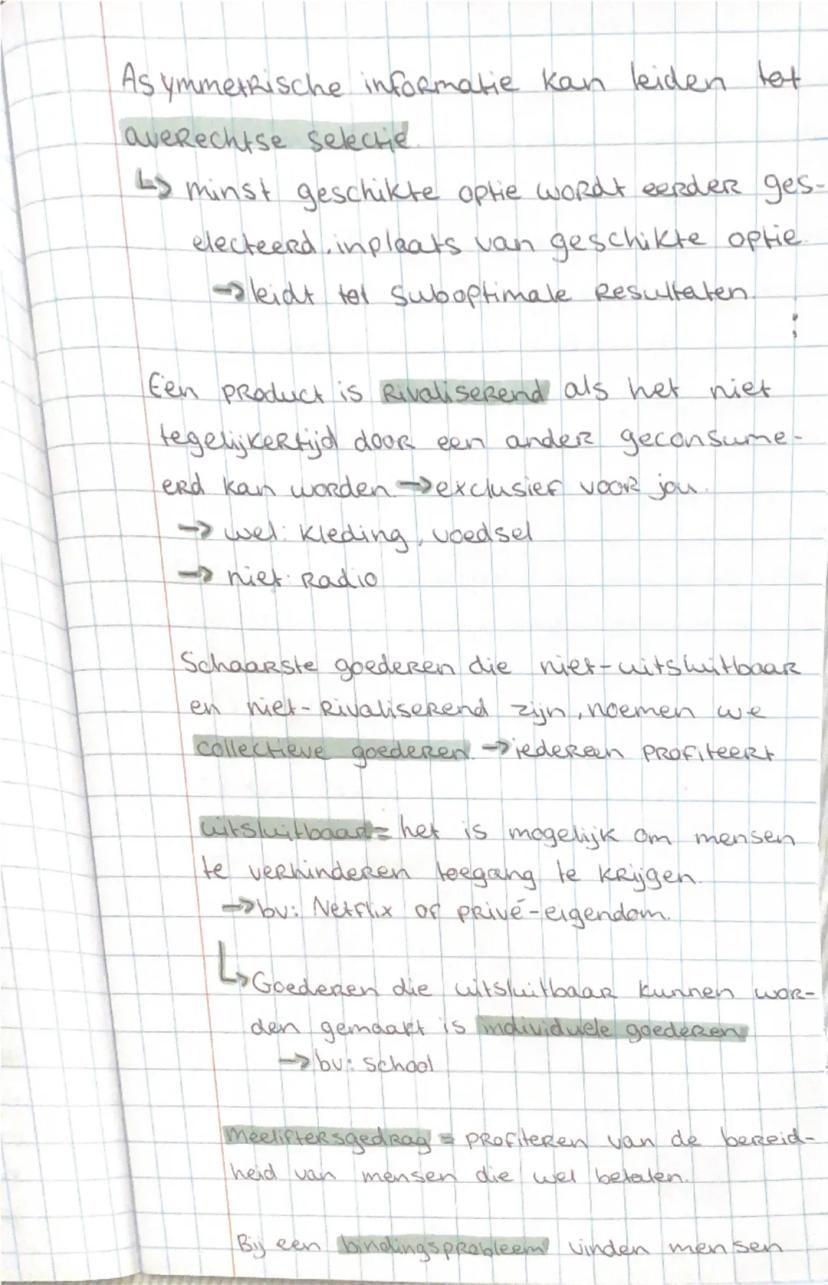 Asymmetrische informatie kan leiden tot
averechtse selectie.
↳ minst geschikte optie wordt eerder ges-
electeerd, inplaats van geschikte optie.
→ leidt tot suboptimale resultaten.
Een product is rivaliserend als het niet
tegelijkertijd door een ander geconsume-
erd kan worden → exclusief voor jou.
→ wel: kleding, voedsel
→ niet: radio
Schaarste goederen die niet-uitsluitbaar
en niet-rivaliserend zijn, noemen we
collectieve goederen. → iedereen profiteert
uitsluitbaar = het is mogelijk om mensen
te verhinderen toegang te krijgen.
→ bv: Netflix of privé-eigendom.
↳ Goederen die uitsluitbaar kunnen wor-
den gemaakt is individuele goederen
→ bv: school
meeliftersgedrag = profiteren van de bereid-
heid van mensen die wel betalen.
Bij een bindingsprobleem vinden mensen